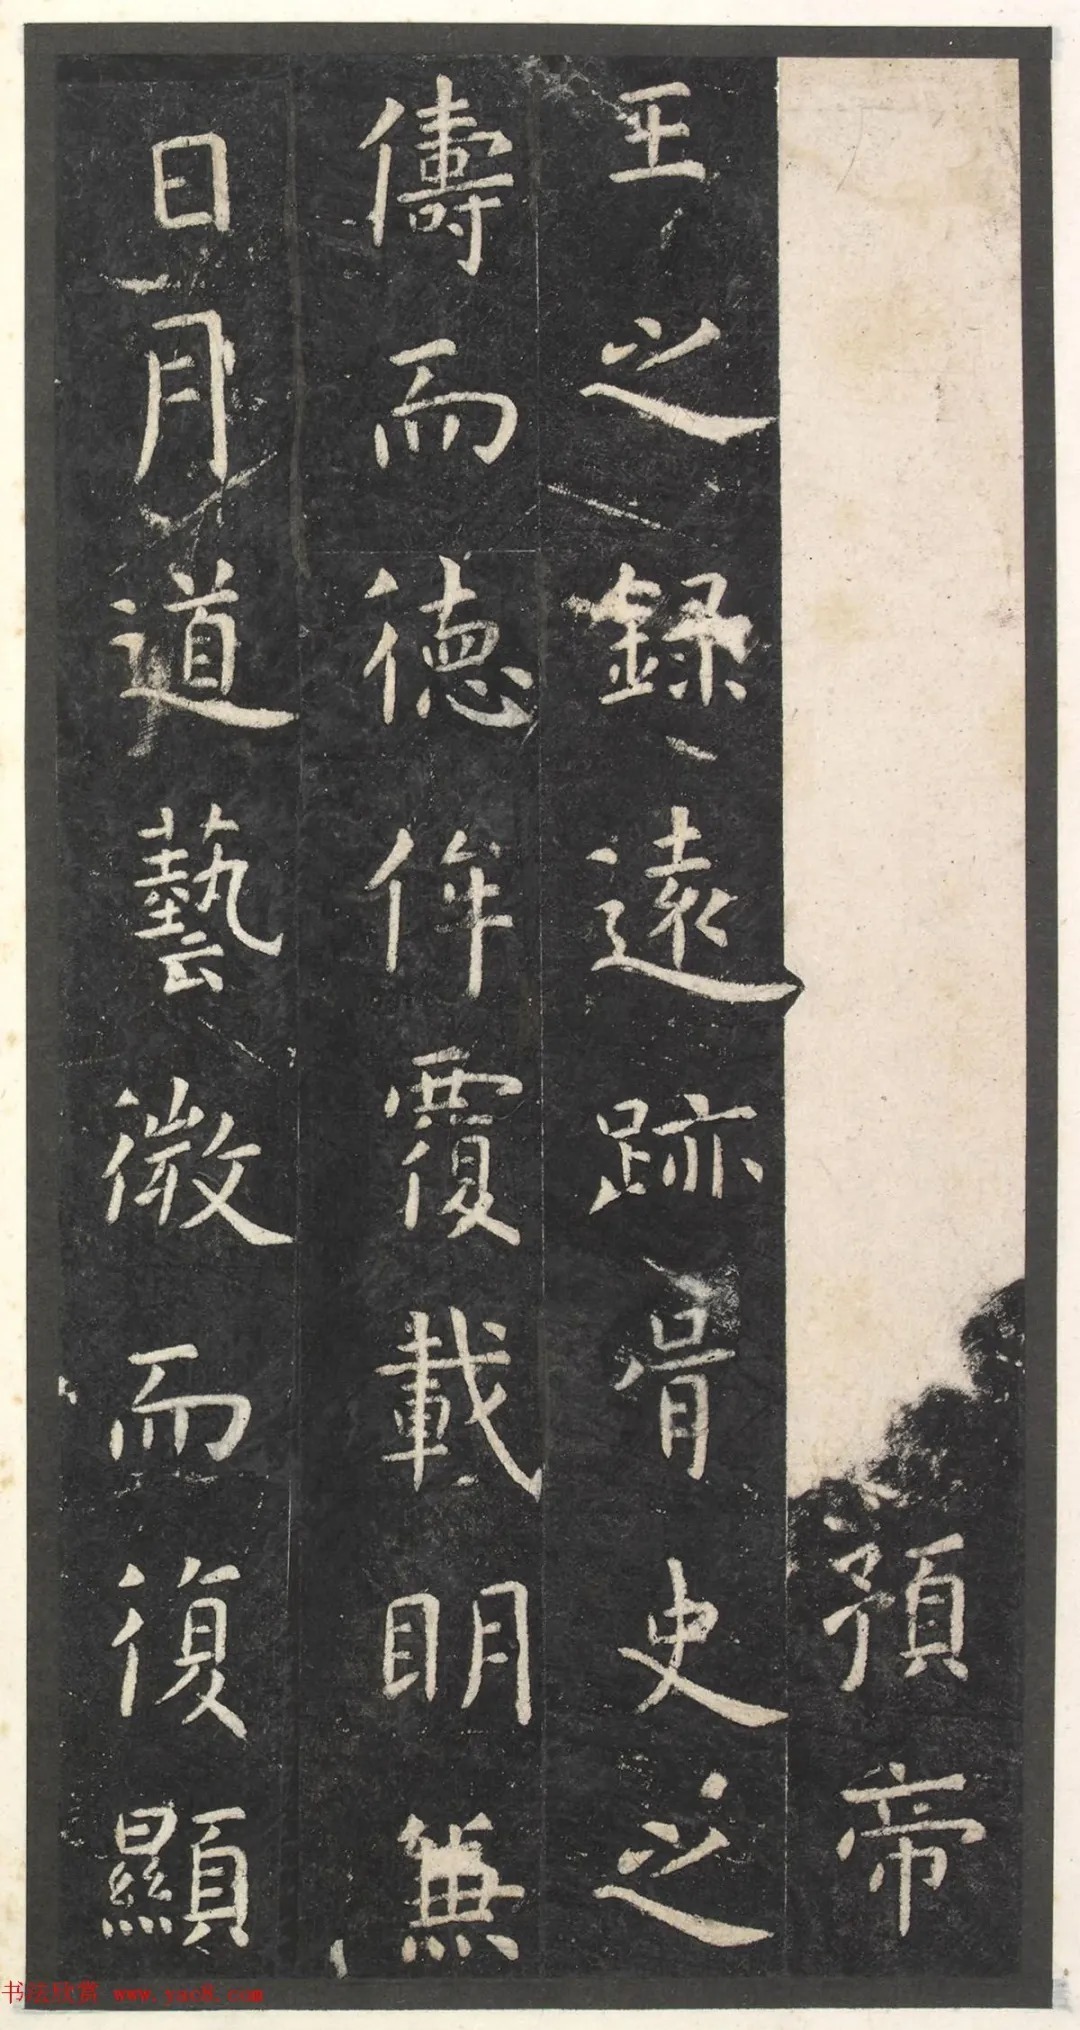 預帝
王之録遠跡胥史之
儔而德侔覆載明無
日月道藝微而復顯
书法欣赏 www.yac8.com